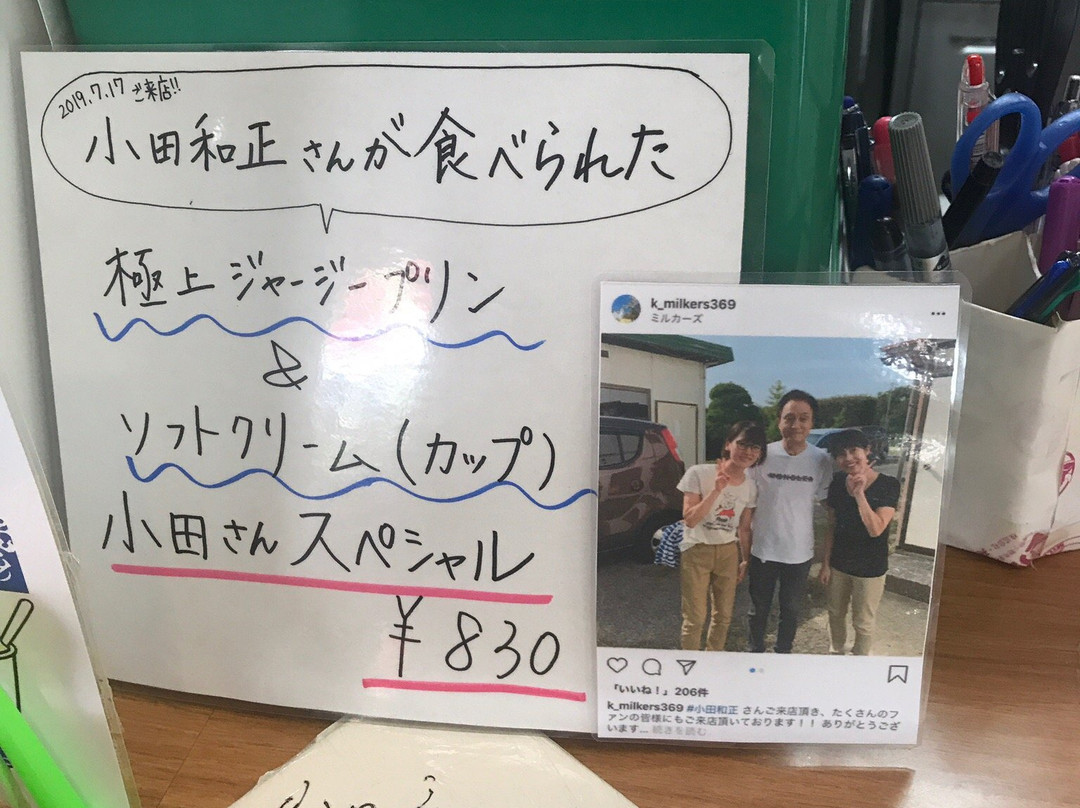 2019.7.17 ご来店!!
小田和正さんが食べられた
極上ジャージープリン
&
ソフトクリーム(カップ)
小田さんスペシャル
¥830
k_milkers369
ミルカーズ
「いいね！」206件
k_milkers369 #小田和正 さんご来店頂き、たくさんのフ
ァンの皆様にもご来店頂いております！！ ありがとうござ
います... 続きを読む